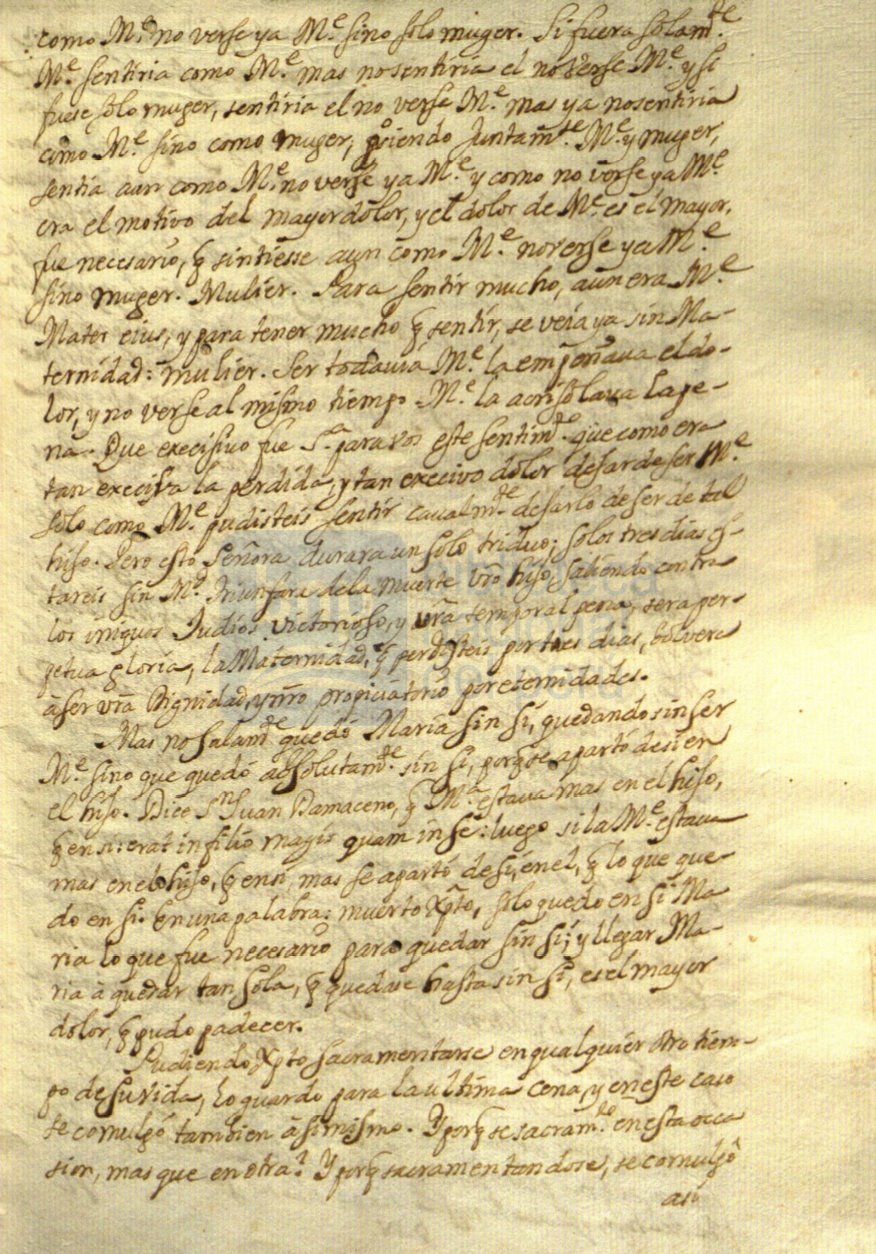 como M.e no verse ya M.e sino solo muger. Si fuera solam.te
M.e sentiria como M.e mas no sentiria el no verse M.e y si
fuese solo muger, sentiria el no verse M.e mas ya no sentiria
como M.e sino como muger, po siendo juntam.te M.e y muger,
sentia aun como M.e no verse ya M.e y como no verse ya M.e
era el motivo del mayor dolor, y el dolor de M.e es el mayor,
fue necesario, q̃ sintiesse aun como M.e no verse ya M.e
sino muger. Mulier. Para sentir mucho, aun era M.e
Mater eius, y para tener mucho q̃ sentir, se veia ya sin Ma-
ternidad: mulier. Ser todavia M.e la empeñava el do-
lor, y no verse al mismo tiempo M.e la acrisolava la pe-
na. Que execisivo fue S.a para vos este sentim.to que como era
tan execisiva la perdida, y tan execivo dolor desar de ser M.e
solo como M.e pudisteis sentir cavalm.te desarlo de ser de tal
hijo. Pero esto Señora durara un solo triduo; solos tres dias es-
tareis sin M.d Triunfara de la muerte vro hijo, saliendo contra
los iniquos Judios victorioso, y vrã temporal pena, sera per-
petua gloria, la Maternidad, q̃ perdisteis por tres dias, bolvera
à ser vrã Dignidad, y nrõ propiciatorio por eternidades.
Mas no salam.te quedó Maria sin sí, quedando sin ser
M.e sino que quedó absolutam.te sin si, porq̃ se apartó de si en
el hijo. Dice S.n Juan Damaceno, q̃ M.a estava mas en el hijo,
q̃ en si: erat in filio magis quam in se: luego si la M.e estava
mas en el hijo, q̃ en si, mas se apartó de si, en el, q̃ lo que que-
do en si. En una palabra: muerto Xpto, solo quedo en si Ma
ria lo que fue necesario para quedar sin sí; y llegar Ma-
ria à quedar tan sola, q̃ quedase hasta sin si, es el mayor
dolor, q̃ pudo padecer.
Pudiendo Xpto sacramentarse en qualquier otro tiem-
po de su vida, lo guardo para la ultima cena, y en este caso
se comulgó tambien à si mismo. Y porq̃ se sacram.to en esta occa
sion, mas que en otra? Y porq̃ sacramentandose, se comulgó
asi